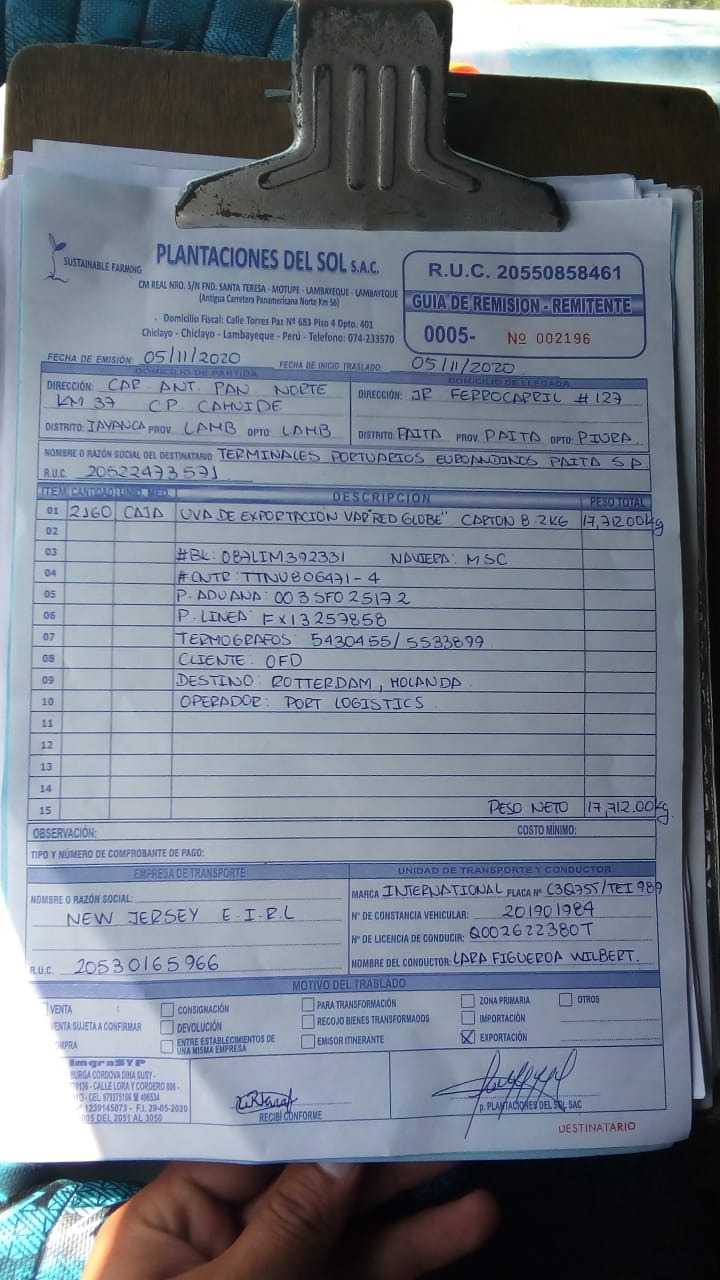 SUSTAINABLE FARMING
PLANTACIONES DEL SOL S.A.C.
CM REAL NRO. S/N FND. SANTA TERESA - MOTUPE - LAMBAYEQUE - LAMBAYEQUE
(Antigua Carretera Panamericana Norte Km 56)
Domicilio Fiscal: Calle Torres Paz Nº 683 Piso 4 Dpto. 401
Chiclayo - Chiclayo - Lambayeque - Perú - Telefono: 074-233570
R.U.C. 20550858461
GUIA DE REMISION - REMITENTE
0005- Nº 002196
FECHA DE EMISIÓN: 05/11/2020 FECHA DE INICIO TRASLADO: 05/11/2020
DOMICILIO DE PARTIDA
DIRECCIÓN: CAR. ANT. PAN. NORTE
KM 37 C.P. CAHUIDE
DISTRITO: JAYANCA PROV. LAMB DPTO: LAMB
DOMICILIO DE LLEGADA
DIRECCIÓN: JR FERROCARRIL #127
DISTRITO: PAITA PROV. PAITA DPTO: PIURA
NOMBRE O RAZÓN SOCIAL DEL DESTINATARIO TERMINALES PORTUARIOS EUROANDINOS PAITA S.A.
R.U.C. 20522473571
ITEM CANTIDAD UNID. MED. DESCRIPCION PESO TOTAL
01 2160 CAJA UVA DE EXPORTACIÓN VAR "RED GLOBE" CARTON 8.2KG 17,712.00kg
02
03 #BL: 087LIM392331 NAVIERA: MSC
04 # CNTR: TTNU806471-4
05 P. ADUANA: 0035F025172
06 P. LINEA: FX13257858
07 TERMOGRAFOS: 5430455/5533899
08 CLIENTE: OFD
09 DESTINO: ROTTERDAM, HOLANDA.
10 OPERADOR: PORT LOGISTICS
11
12
13
14
15 PESO NETO 17,712.00kg.
OBSERVACIÓN: COSTO MÍNIMO:
TIPO Y NÚMERO DE COMPROBANTE DE PAGO:
EMPRESA DE TRANSPORTE
NOMBRE O RAZÓN SOCIAL:
NEW JERSEY E.I.R.L
R.U.C. 20530165966
UNIDAD DE TRANSPORTE Y CONDUCTOR
MARCA INTERNATIONAL PLACA Nº C3Q755/TEI989
Nº DE CONSTANCIA VEHICULAR: 201901984
Nº DE LICENCIA DE CONDUCIR: Q002622380T
NOMBRE DEL CONDUCTOR: LARA FIGUEROA WILBERT.
MOTIVO DEL TRASLADO
VENTA
VENTA SUJETA A CONFIRMAR
OMPRA
CONSIGNACIÓN
DEVOLUCIÓN
ENTRE ESTABLECIMIENTOS DE
UNA MISMA EMPRESA
PARA TRANSFORMACIÓN
RECOJO BIENES TRANSFORMADOS
EMISOR ITINERANTE
ZONA PRIMARIA
IMPORTACIÓN
X EXPORTACIÓN
OTROS
ImgraSYP
BURGA CORDOVA DINA SUSY -
71136 - CALLE LORA Y CORDERO 886 -
YO - CEL. 979275166 ☎ 496534
º 1239145073 - F.I. 29-05-2020
005 DEL 2051 AL 3050
RECIBÍ CONFORME
p. PLANTACIONES DEL SOL SAC
DESTINATARIO